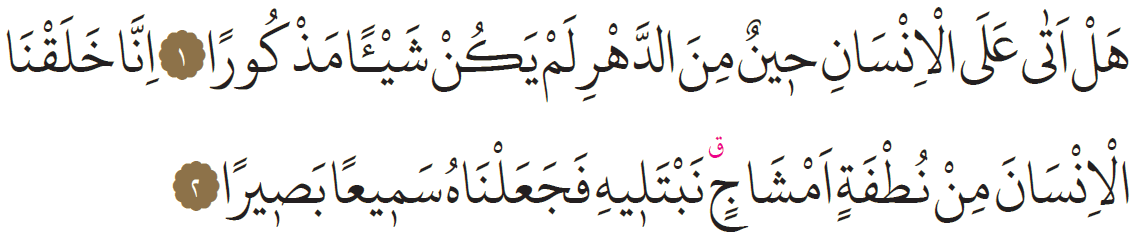 هَلْ اَتٰى عَلَى الْاِنْسَانِ ح۪ينٌ مِنَ الدَّهْرِ لَمْ يَكُنْ شَيْـًٔا مَذْكُورًا ﴿١﴾ اِنَّا خَلَقْنَا
الْاِنْسَانَ مِنْ نُطْفَةٍ اَمْشَاجٍۗ نَبْتَل۪يهِ فَجَعَلْنَاهُ سَم۪يعًا بَص۪يرًا ﴿٢﴾